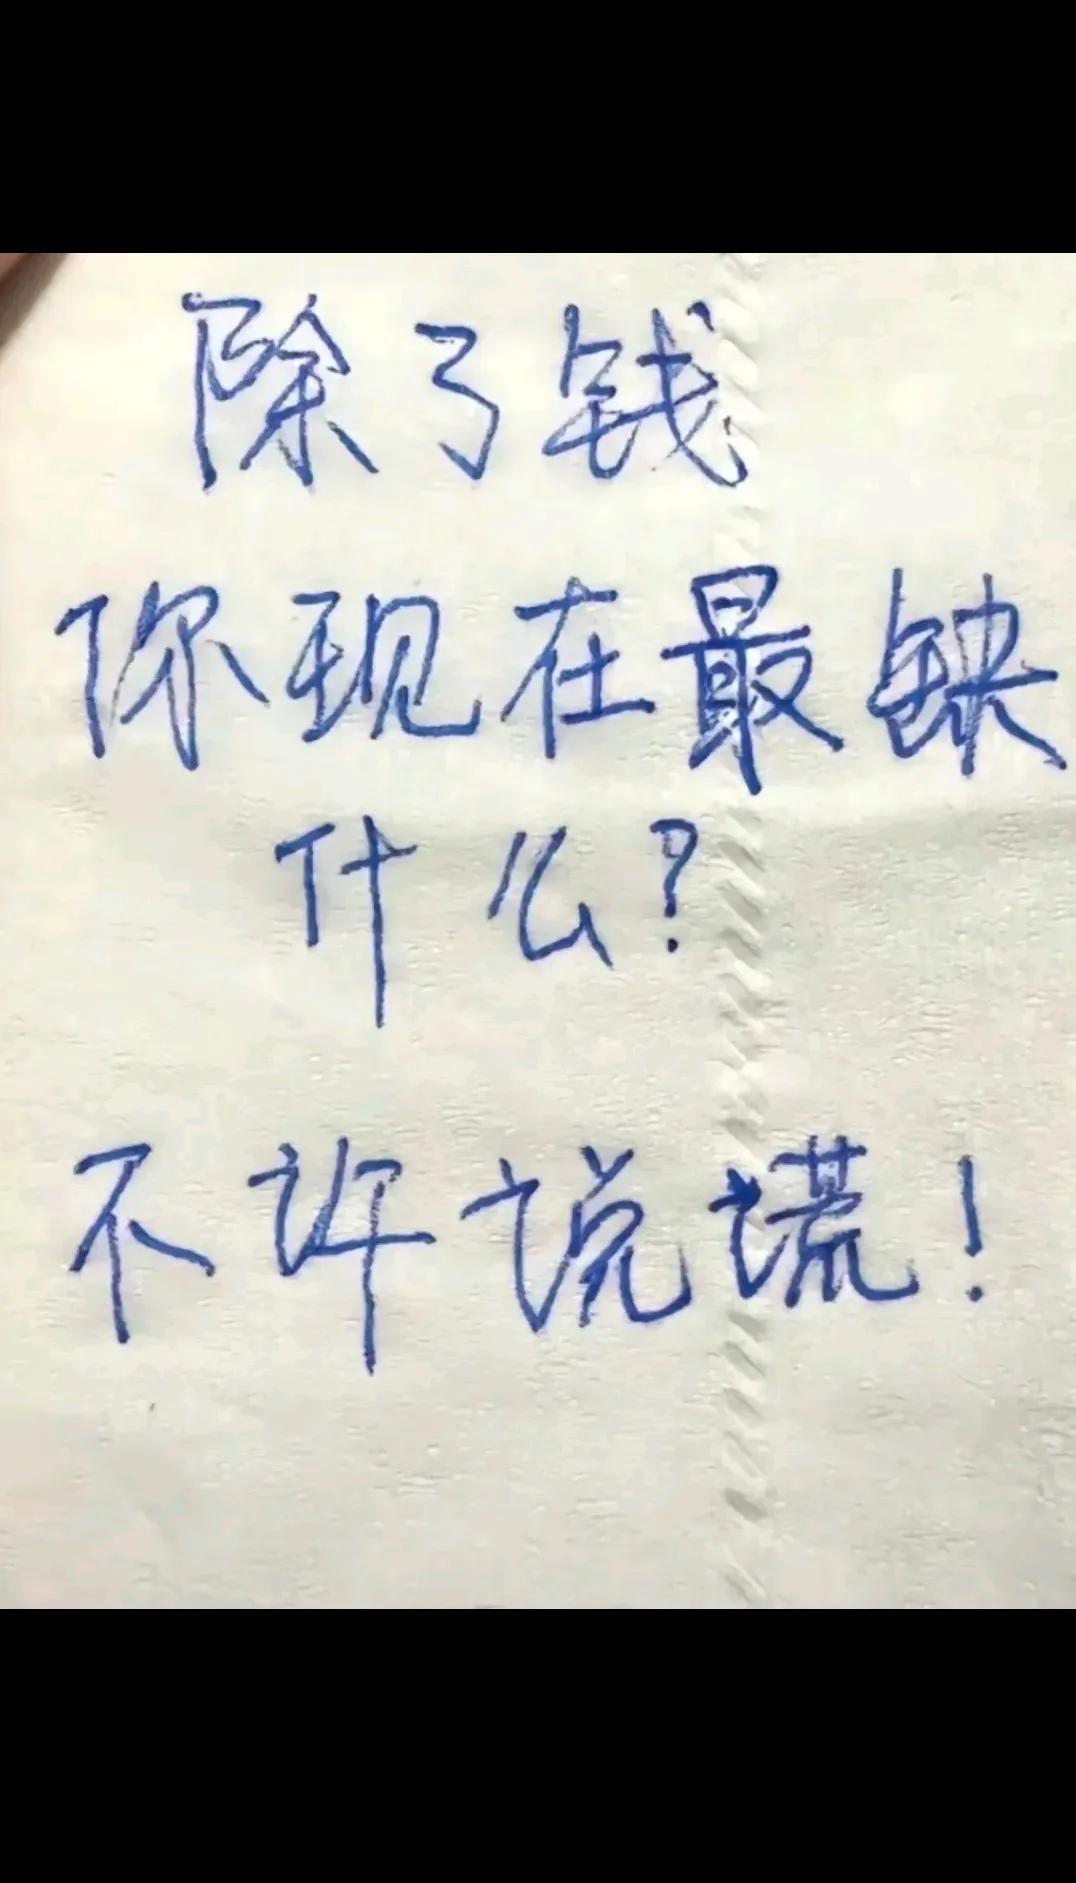 除了钱
你现在最缺
什么?
不许说谎!